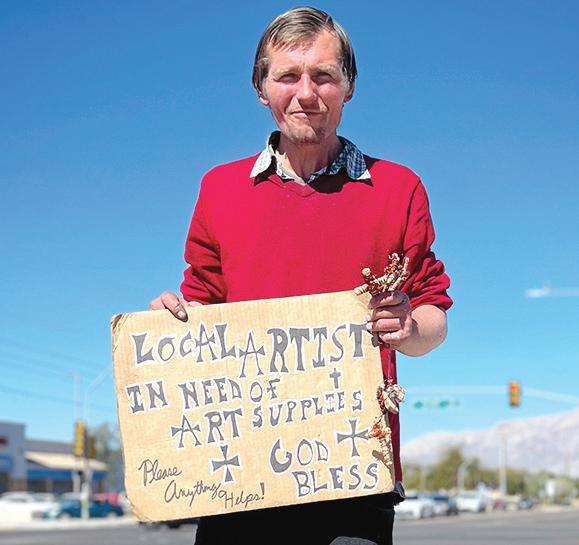 LOCAL ARTIST
IN NEED OF
ART SUPPLIES
Please
Anything Helps!
GOD
BLESS